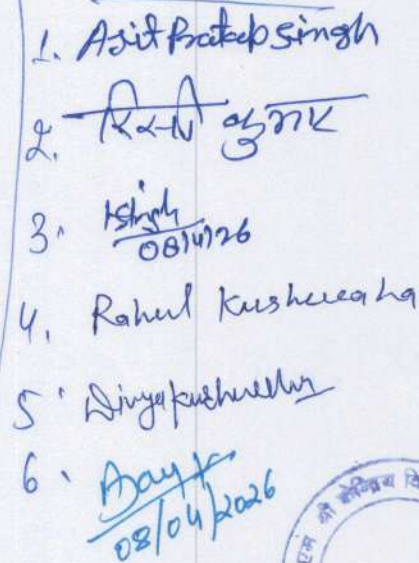 1. Asit Pratap singh
2. कुमार
3. 08/4/26
4. Rahul Kushwaha
5. Divya kushwaha
6. Ajay K
08/04/2026
एम श्री